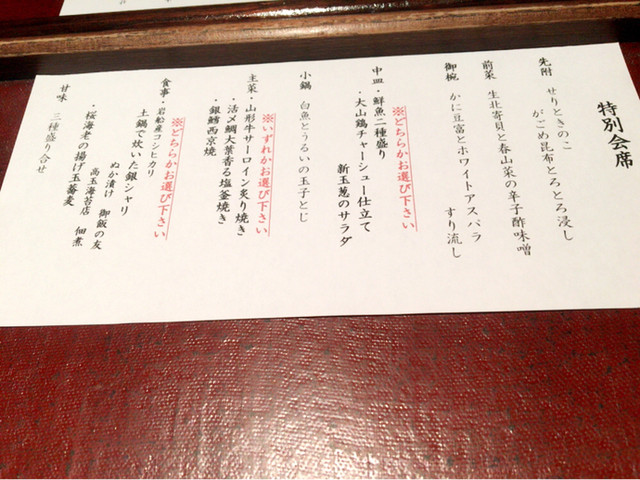 特別会席
先附　せりときのこ
がごめ昆布とろとろ浸し
前菜　生北寄貝と春山菜の辛子酢味噌
御椀　かに豆富とホワイトアスパラ
すり流し
※どちらかお選び下さい
中皿・鮮魚二種盛り
・大山鶏チャーシュー仕立て
新玉葱のサラダ
小鍋　白魚とうるいの玉子とじ
※いずれかお選び下さい
主菜・山形牛サーロイン炙り焼き
・活〆鯛大葉香る塩釜焼き
・銀鱈西京焼
※どちらかお選び下さい
食事・岩船産コシヒカリ
土鍋で炊いた銀シャリ
ぬか漬け　御飯の友
高玉海苔店　佃煮
・桜海老の揚げ玉蕎麦
甘味　三種盛り合せ